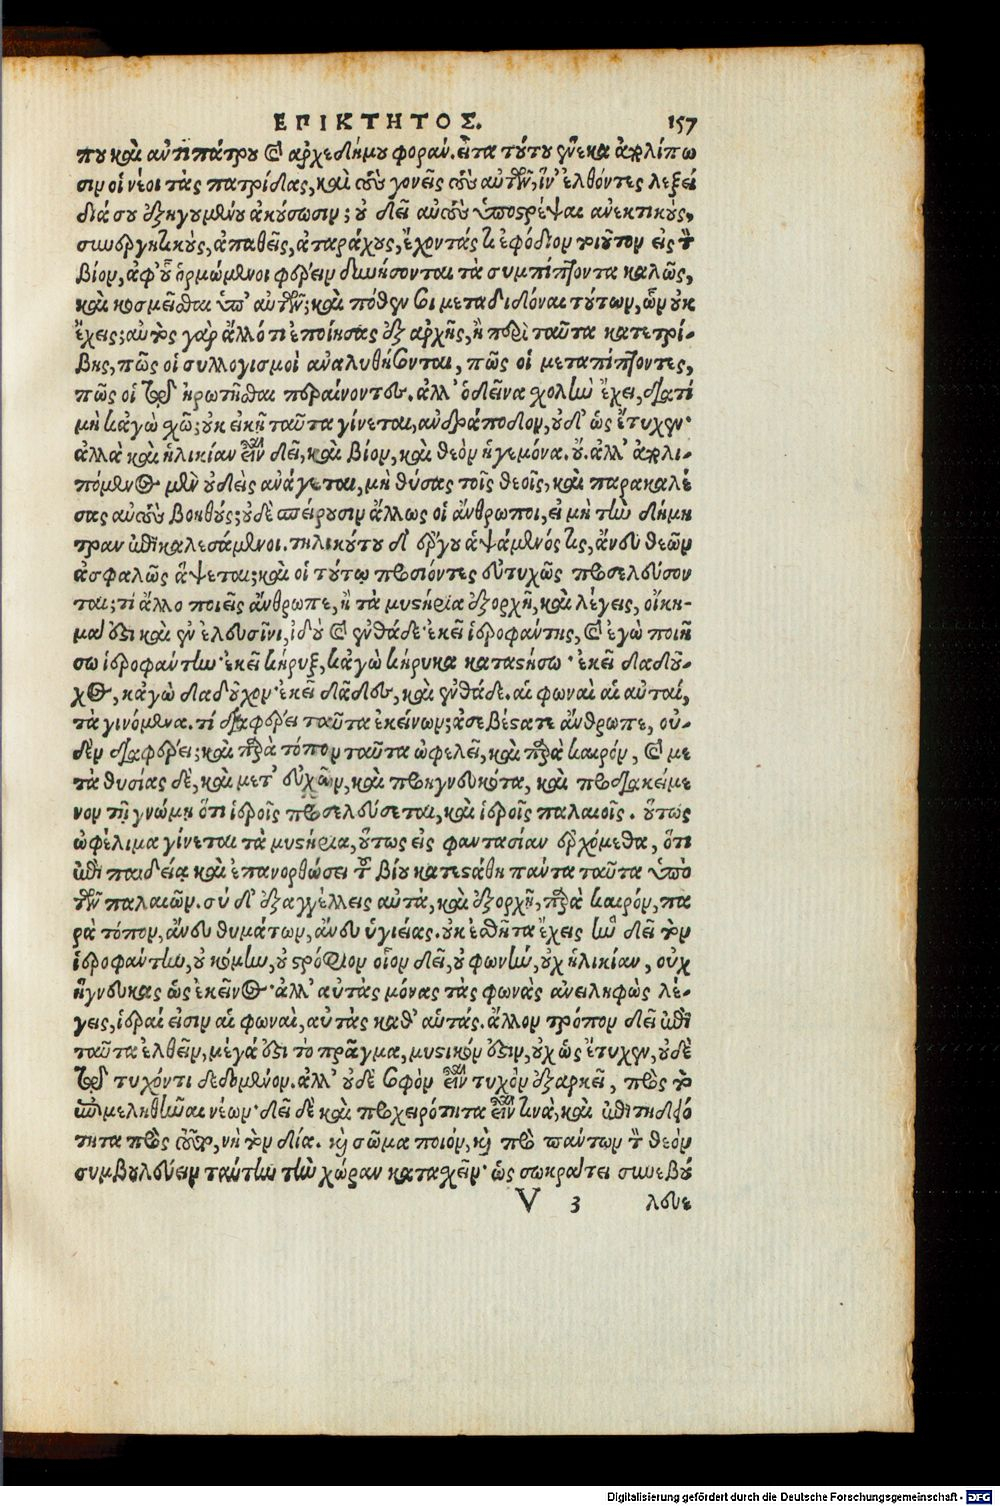 ΕΠΙΚΤΗΤΟΣ. 157
που καὶ αντιπάτρου καὶ αρχεδήμου φοράν. εἶτα τούτου ἕνεκα ἀπολίπω
σιν οἱ νέοι τὰς πατρίδας, καὶ τοὺς γονεῖς τοὺς αὐτῶν, ἵν' ἐλθόντες λεξεί
διά σου ἐξηγουμένου ἀκούσωσιν; οὐ δεῖ αυτοὺς ὑποστρέψαι ανεκτικούς,
συνεργητικούς, ἀπαθεῖς, ἀταράχους, ἔχοντάς τι εφόδιον τοιοῦτον εἰς τὸν
βίον, ἀφ' οὗ ὁρμώμενοι φέρειν δυνήσονται τὰ συμπίπτοντα καλῶς,
καὶ κοσμεῖσθαι ὑπ' αυτῶν; καὶ πόθεν σοι μεταδιδόναι τούτων, ὧν οὐκ
ἔχεις; αυτὸς γαρ ἄλλό τι ἐποίησας ἐξ αρχῆς, ἢ περὶ ταῦτα κατετρί-
βης, πῶς οἱ συλλογισμοὶ αναλυθήσονται, πῶς οἱ μεταπίπτοντες,
πῶς οἱ τῷ ἠρωτῆσθαι περαίνοντες. ἀλλ' ὁ δεῖνα σχολὴν ἔχει, διατί
μὴ κἀγὼ σχῶ; οὐκ εικῆ ταῦτα γίνεται, ανδράποδον, οὐδ' ὡς ἔτυχεν·
ἀλλὰ καὶ ἡλικίαν εἶναι δεῖ, καὶ βίον, καὶ θεὸν ἡγεμόνα. οὔ. ἀλλ' ἀπολι-
πόμενος μὲν οὐδεὶς ανάγεται, μὴ θύσας τοῖς θεοῖς, καὶ παρακαλέ
σας αυτοὺς βοηθούς; οὐδὲ σπείρουσιν ἄλλως οἱ ἄνθρωποι, εἰ μὴ τὴν δήμη
τραν ἐπικαλεσάμενοι. τηλικούτου δ' ἔργου ἁψάμενός τις, ἄνευ θεῶν
ἀσφαλῶς ἅψεται; καὶ οἱ τούτῳ προσιόντες εὐτυχῶς προσελεύσον
ται; τί ἄλλο ποιεῖς ἄνθρωπε, ἢ τὰ μυστήρια ἐξορχῇ, καὶ λέγεις, οἴκη-
μά ἐστι καὶ ἐν ἐλευσῖνι, ἰδοὺ καὶ ἐνθάδε· ἐκεῖ ἱεροφαντης, καὶ ἐγὼ ποιή
σω ἱεροφαντην· ἐκεῖ κήρυξ, κἀγὼ κήρυκα καταστήσω· ἐκεῖ δαδοῦ-
χος, κἀγὼ δαδοῦχον· ἐκεῖ δᾶδες, καὶ ἐνθάδε. αἱ φωναὶ αἱ αὐταί,
τὰ γινόμενα. τί διαφέρει ταῦτα ἐκείνων; ἀσεβέστατε ἄνθρωπε, οὐ-
δὲν διαφέρει; καὶ παρὰ τόπον ταῦτα ὠφελεῖ, καὶ παρὰ καιρόν, καὶ με
τὰ θυσίας δὲ, καὶ μετ' εὐχῶν, καὶ προηγνευκότα, καὶ προδιακείμε
νον τῇ γνώμῃ ὅτι ἱεροῖς προσελεύσεται, καὶ ἱεροῖς παλαιοῖς. οὕτως
ὠφέλιμα γίνεται τὰ μυστήρια, οὕτως εἰς φαντασίαν ἐρχόμεθα, ὅτι
ἐπὶ παιδείᾳ καὶ ἐπανορθώσει τοῦ βίου κατεστάθη παντα ταῦτα ὑπὸ
τῶν παλαιῶν. σὺ δ' ἐξαγγέλλεις αὐτὰ, καὶ ἐξορχῇ, παρὰ καιρόν, πα
ρὰ τόπον, ἄνευ θυμάτων, ἄνευ ὑγιείας. οὐκ ἐσθῆτα ἔχεις ἣν δεῖ τὸν
ἱεροφαντην, οὐ κόμην, οὐ στρόφιον οἷον δεῖ, οὐ φωνήν, οὐχ ἡλικίαν, οὐχ
ἥγνευκας ὡς ἐκεῖνος· ἀλλ' αὐτὰς μόνας τὰς φωνὰς ανειληφὼς λέ-
γεις, ἱεραί εἰσιν αἱ φωναὶ, αυτὰς καθ' αὑτάς. ἄλλον τρόπον δεῖ ἐπὶ
ταῦτα ἐλθεῖν, μέγά ἐστι το πρᾶγμα, μυστικόν ἐστιν, οὐχ ὡς ἔτυχεν, οὐδὲ
τῷ τυχόντι δεδομένον. ἀλλ' οὐδὲ σοφὸν εἶναι τυχὸν ἐξαρκεῖ, πρὸς τὸ
ἐπιμεληθῆναι νέων· δεῖ δὲ καὶ προχειρότητα εἶναι τινὰ, καὶ ἐπιτηδειό
τητα πρὸς τοῦτο, νὴ τὸν δία. καὶ σῶμα ποιόν, καὶ πρὸ παντων τὸν θεὸν
συμβουλεύειν ταύτην τὴν χώραν κατασχεῖν· ὡς σωκράτει συνεβού
V 3 λευε